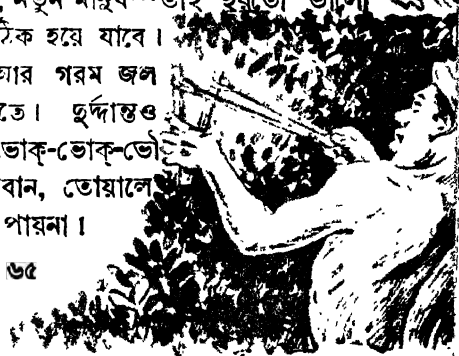 নতুন মানুষ
ঠিক হয়ে যাবে।
আর গরম জল
তে। দুর্দ্দান্তও
ভোক্-ভোক্-ভৌ
বান, তোয়ালে
পায়না।
৬৫